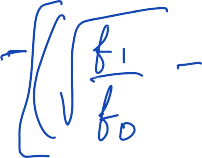 -[(√(f₁/f₀) -